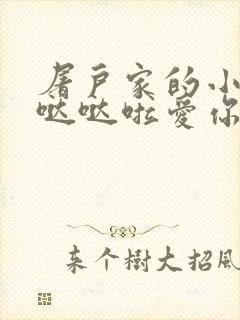 屠户家的小
哒哒啦爱你
来个樹大招風